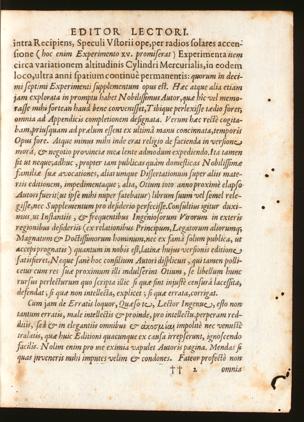 EDITOR LECTORI.
intra Recipiens, Speculi Vstorii ope, per radios solares accen-
sione (hoc enim Experimento xv. promiserat) Experimenta item
circa variationem altitudinis Cylindri Mercurialis, in eodem
loco, ultra anni spatium continuè permanentis: quorum in deci-
mi septimi Experimenti supplementum opus est. Hæc atque alia etiam
jam explorata in promptu habet Nobilissimus Autor, quæ hic vel memo-
rasse mihi fortean haud bene convenisset, Tibique perlexisse tædio foret;
omnia ad Appendicis completionem designata. Verum hæc rectè cogita-
bam, priusquam ad prælum essent ex ultimâ manu concinnata, temporis
Opus fore. Atque nimus mihi inde erat religio de facienda in versione
morâ, & negotio provinciæ meæ lentè admodum expediendo. Ita tamen
sit ut neque, actus, propter tam publicas quàm domesticas Nobilissimæ
familiæ suæ avocationes, alias umque Dissertationum super aliis mate-
riis editionem, impedimentaque, alia, Otium toto anno proximè elapso
Autori fuerit, (ut ipse mihi nuper fatebatur) librum suum vel semel rele-
gisse, nec Supplementum pro desiderio perfecisse. Consultius igitur duxi-
mus, ut Instantiis, & frequentibus Ingeniosorum Virorum in exteris
regionibus desideriis (ex relationibus Principum, Legatorum aliorumque
Magnatum & Doctissimorum hominum, nec ex famâ solum publica, ut
accepi, prognatis) quantum in nobis est, latinæ hujus versionis editione
satisfieret. Neque sanè hoc consilium Autori displicuit, qui tamen polli-
citus cum res suæ proximum illi indulserint Otium, se libellum hunc
rursus perlecturum quo scripta illic si quæ sint injustè censurâ lacessita,
defendat, si quæ non intellecta, explicet; si quæ errata, corrigat.
Cum jam de Erratis loquor, Quæso te, Lector Ingenue, esto non
tantum erratis, malè intellectis & proinde, pro intellectu, perperam red-
ditis, sed & in elegantiis omnibus & ἀκοσμίαις impolitè nec venustè
tralatis, quæ huic Editioni quacunque ex causa irrepserint, ignoscendo
facilis. Nolim enim pro me eximio vapulet Autoris pagina. Mendas si
quas inveneris mihi imputes velim & condones. Fateor profectò non
†† 2 omnia